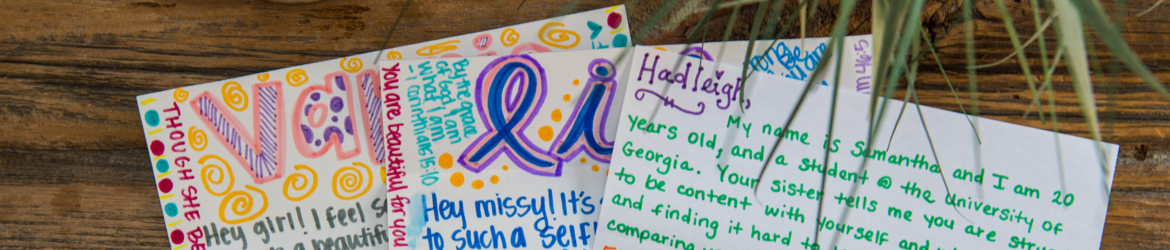 THOUGH SHE BE
Val
Hey girl! I feel
a beautif
You are beautiful for you
By the grace
of God I am
what I am
-1 corinthians 15:10
li
Hey missy! It's
to such a self
Hadleigh,
My name is Samantha and I am 20
years old, and a student @ the university of
Georgia. Your sister tells me you are
to be content with yourself and
and finding it hard to
comparing